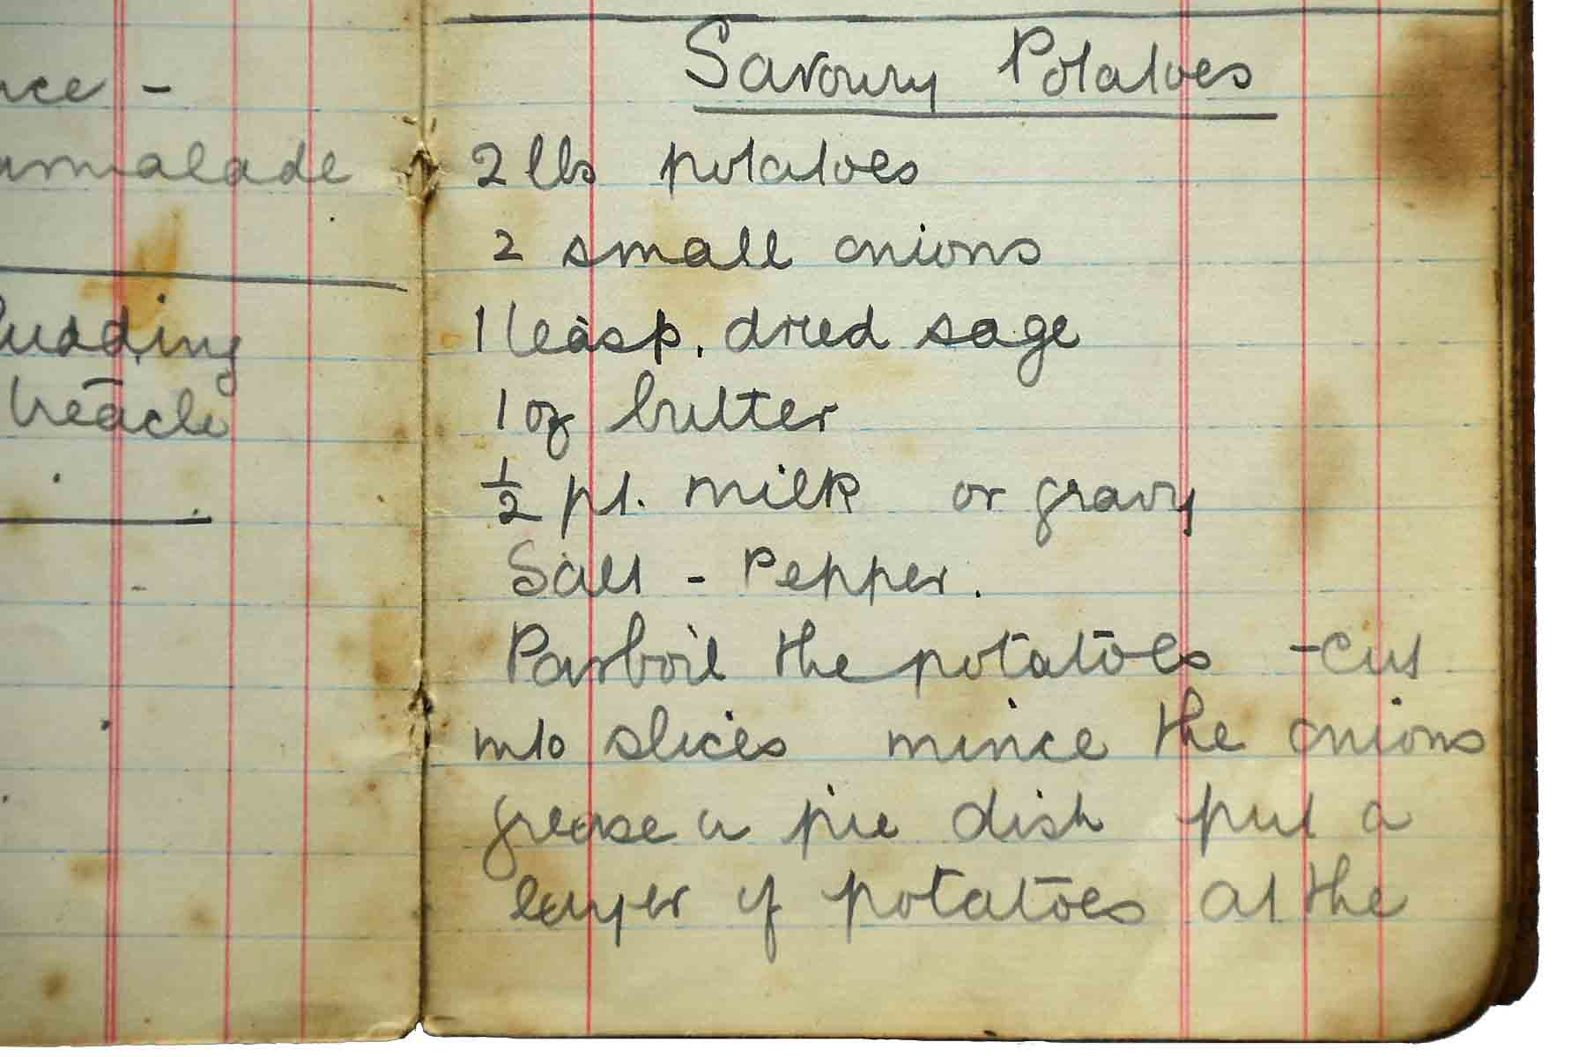 marmalade
Pudding
treacle
Savoury Potatoes
2 lbs potatoes
2 small onions
1 teasp. dried sage
1 oz butter
½ pt. milk or gravy
Salt - Pepper.
Parboil the potatoes - cut
into slices mince the onions
grease a pie dish put a
layer of potatoes at the